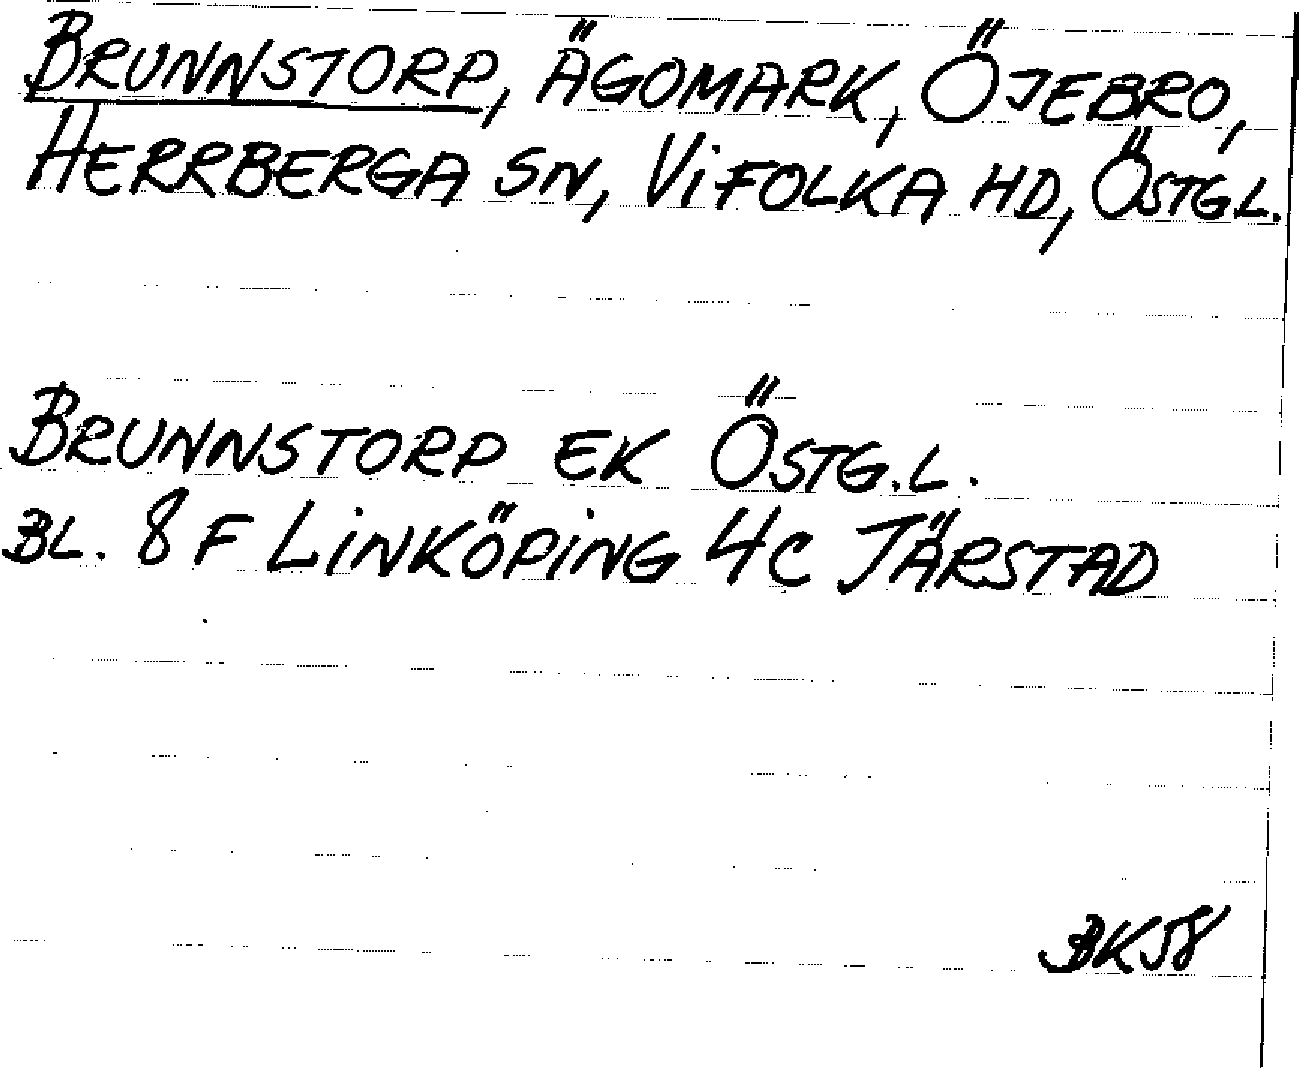 BRUNNSTORP, ÄGOMARK, ÖJEBRO,
HERRBERGA SN, ViFOLKA HD, ÖSTGL.
BRUNNSTORP EK ÖSTG.L.
BL. 8 F LiNKÖPiNG 4C JÄRSTAD
BK58